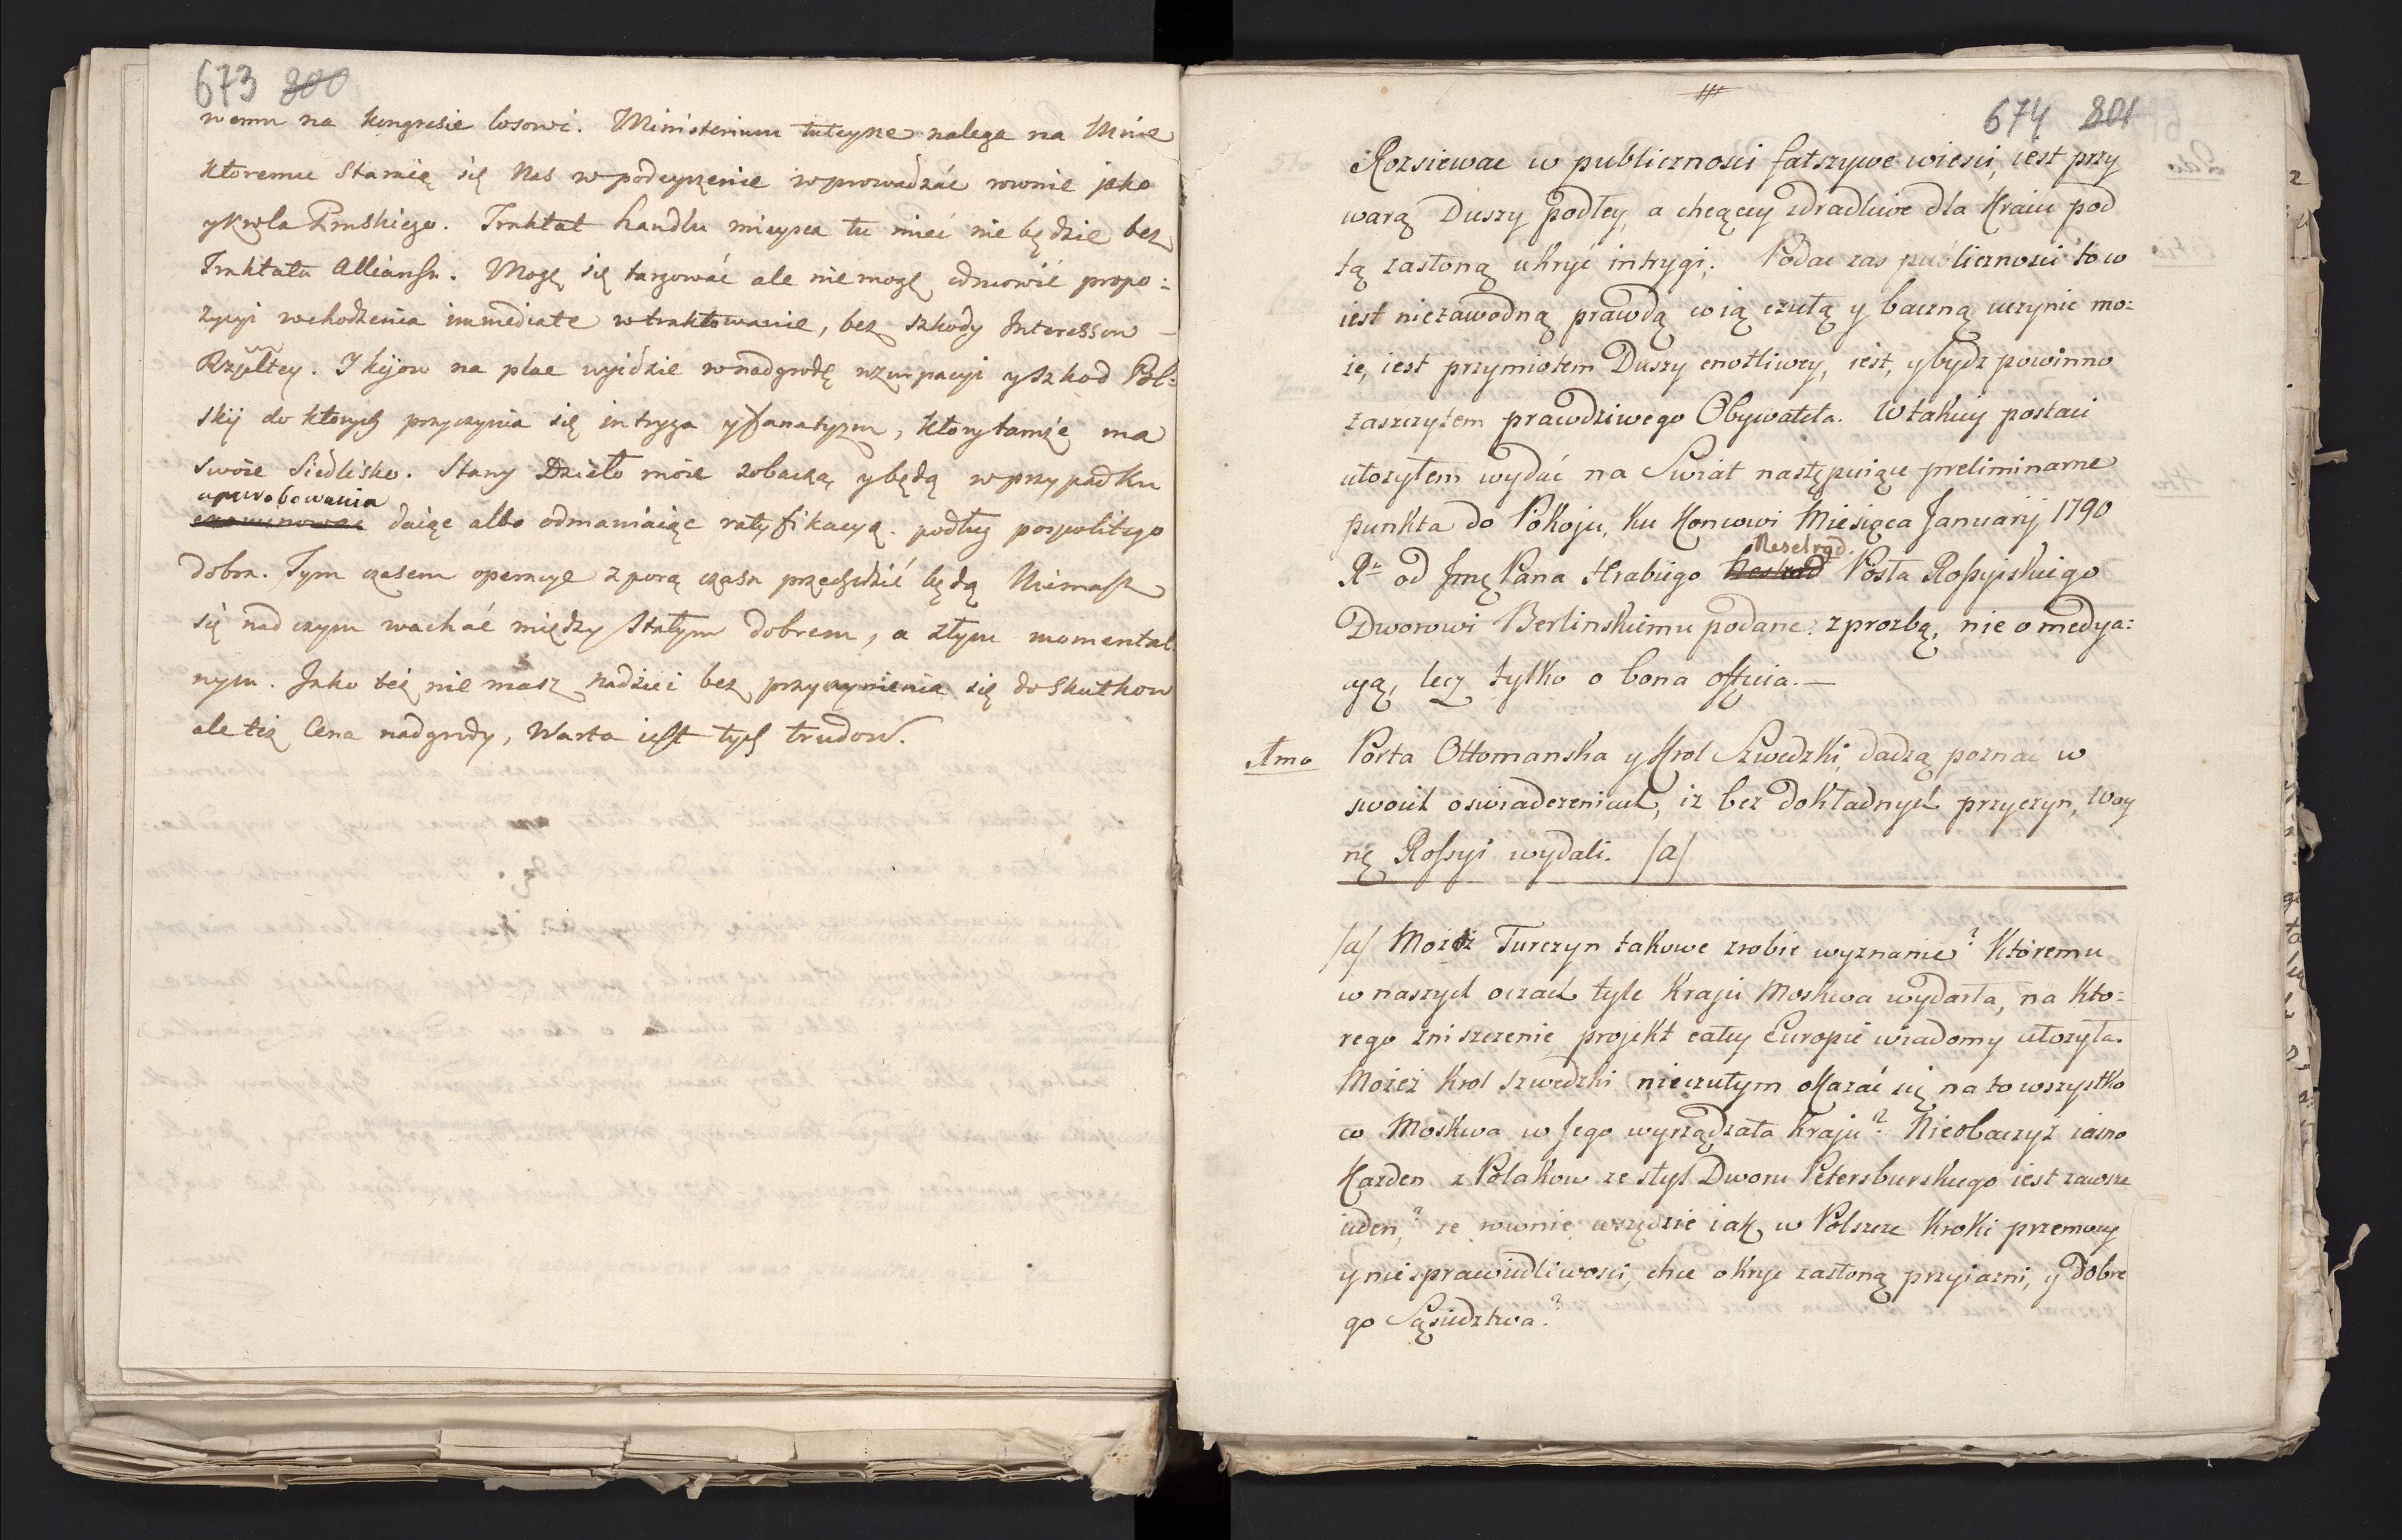 673 300
wemu na kongresie losowi. Ministerium tuteysze nalega na Mnie
ktoremu Stanie się Nas w podeyrzenie wprowadzać rownie jako
y Krola Pruskiego. Traktat handlu mieysca tu mieć nie będzie bez
Traktatu Alliansu. Mogę się targować ale nie mogę odmowić propo:
zycyi wchodzenia immediate w traktowanie, bez szkody Interessow
Rzpltey. I kijow na plac wyidzie w nadgrodę uzurpacyi y szkod Pol:
skij do ktorych przyczynia się intryga y fanatyzm, ktory tamże ma
swoie Siedlisko. Stany Dzieło moie zobaczą, y będą w przypadku
aprobowania
examinować daiąc albo odmawiaiąc ratyfikacyą. podług pospolitego
dobra. Tym czasem operacye z porą czasu przechodzić będą Niemasz
się nad czym wachać między stałym dobrem, a złym momental:
nym. Jako też nie masz nadziei bez przyczynienia się do skutkow
ale też Cena nadgrody, Warta iest tych trudow.
674 301
Rozsiewac w publicznosci fałszywe wiesci, iest przy
warą Duszy podłey, a chcącey zdradliwe dla Kraiu pod
tą zasłoną ukryć intrygi. Podac zas publicznosci to co
iest niezawodną prawdą co ią czułą y baczną uczynic mo:
że, iest przymiotem Duszy cnotliwey, iest, y bydz powinno
zaszczytem prawdziwego Obywatela. W takiey postaci
ułożyłem wydać na Swiat następuiące preliminarne
punkta do Pokoju, ku Koncowi Miesiąca January 1790
Neselrod.
Ru od Jmę Pana Hrabiego Nesrad Posła Rossyiskiego
Dworowi Berlinskiemu podane: z prozbą, nie o medya:
cyą, lecz tylko o bona officia. —
1mo Porta Ottomanska y Krol Szwedzki, dadzą poznać w
swoich oswiadczeniach, iz bez dokładnych przyczyn, Woy
nę Rossyi wydali. /a/
/a/ Możeż Turczyn takowe zrobic wyznanie? Któremu
w naszych oczach tyle Kraju Moskwa wydarła, na Kto:
rego zniszczenie projekt całey Europie wiadomy ułożyła.
Możeż Krol Szwedzki nieczułym okazać się na to wszystko
co Moskwa w Jego wyrządzała Kraju? Nieobaczyż iasno
Każden z Polakow ze styl Dworu Petersburskiego iest zawsze
ieden,? ze rownie wszędzie iak w Polszcze kroki przemocy
y niesprawiedliwosci, chce okryc zasłoną przyiazni, y dobre
go Sąsiedztwa?